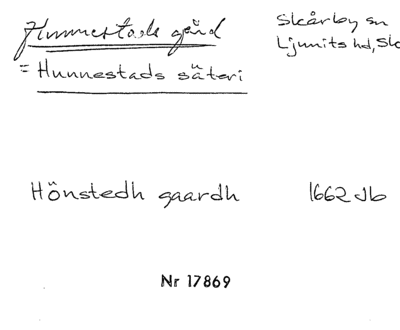 Hunnestads gård
= Hunnestads säteri
Skårby sn
Ljunits hd, Sk
Hönstedh gaardh 1662 Jb
Nr 17869